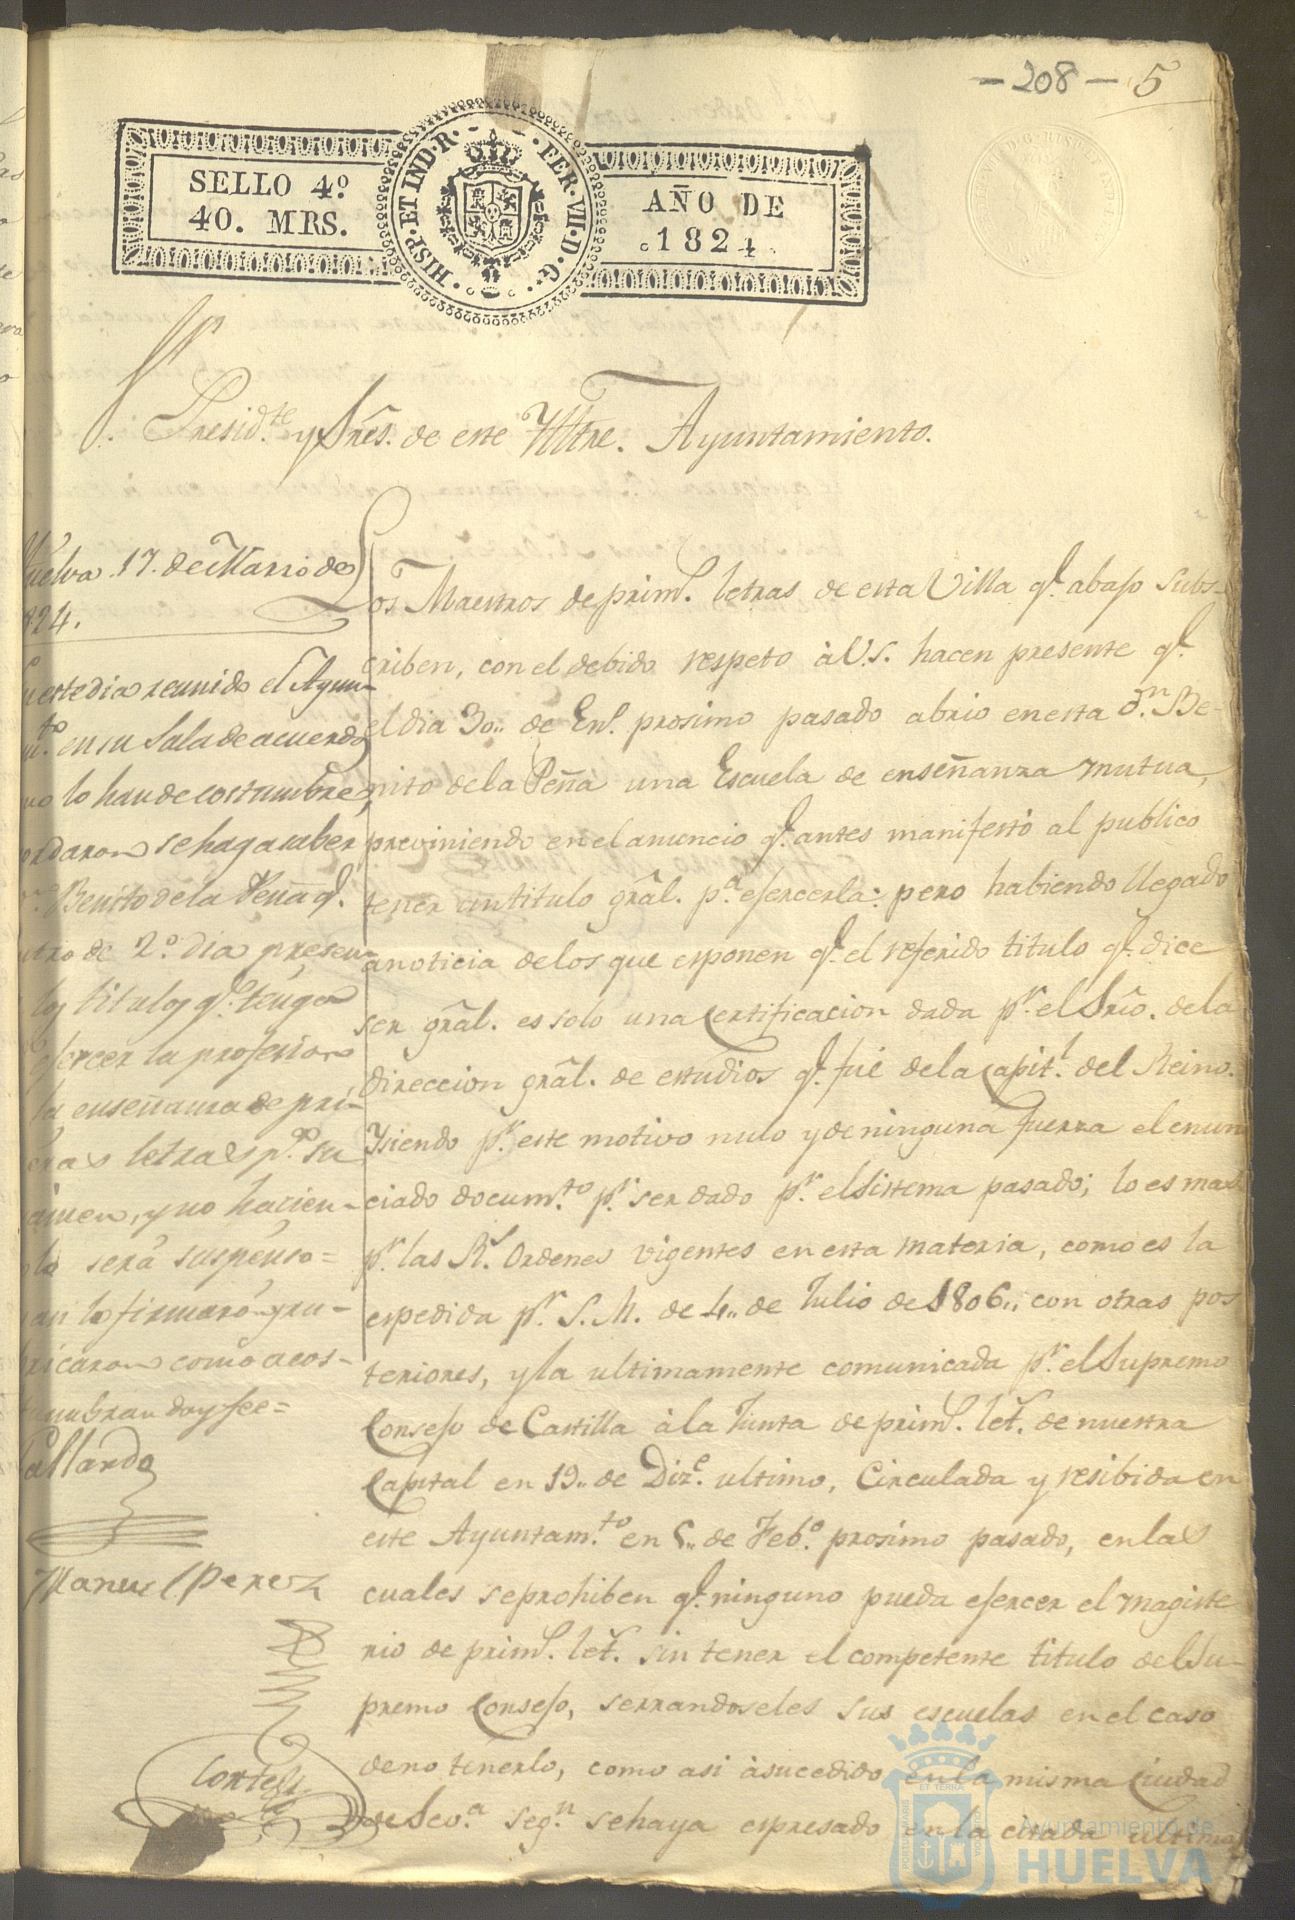 - 208 - 5
SELLO 4º
40. MRS.
HISP. ET IND. R. FER. VII. D. G.
AÑO DE
1824
Sr
Presid.te y Sres. de este Yltre. Ayuntamiento.
Huelva 17. de Marzo de
1824.
En este dia reunido el Ayun-
tam.to en su Sala de acuerdo
como lo han de costumbre,
acordaron se haga saber
Benito de la Peña q.e
dentro de 2.º dia presen-
los titulos q.e tenga
egercer la profesion
la enseñanza de pri-
meras letras p.a su
examen, y no hacien-
será suspenso=
lo firmaron y ru-
bricaron como acos-
tumbran doy fee=
Gallardo
Manuel Perez
Cortes
Los Maestros de prim.s letras de esta Villa q.e abajo subs-
criben, con el debido respeto à V.S. hacen presente q.e
el dia 30.. de En.o prosimo pasado abrio en esta D.n Be-
nito de la Peña una Escuela de enseñanza mutua,
previniendo en el anuncio q.e antes manifestó al publico
tener un titulo gral. p.a esercerla: pero habiendo llegado
a noticia de los que esponen q.e el referido titulo q.e dice
ser gral. es solo una Certificacion dada p.r el Srio. de la
direccion gral. de estudios q.e fué de la Capit.l del Reino.
Y siendo p.r este motivo nulo y de ninguna fuerza el enun
ciado docum.to p.r ser dado p.r el Sistema pasado; lo es mas
p.r las R.s Ordenes vigentes en esta materia, como es la
espedida p.r S. M. de 4.. de Julio de 1806.. con otras pos
teriores, y la ultimamente comunicada p.r el Supremo
Consejo de Castilla à la Junta de prim.s let.s de nuestra
Capital en 19.. de Diz.e ultimo, Circulada y resibida en
este Ayuntam.to en 5.. de Feb.o prosimo pasado, en las
cuales se prohiben q.e ninguno pueda esercer el magiste
rio de prim.s let.s sin tener el competente titulo del Su-
premo Consejo, serrandoseles sus escuelas en el caso
de no tenerlo, como asi à sucedido en la misma Ciudad
de Sev.a seg.n se haya espresado en la citada ultima
Ayuntamiento de
HUELVA